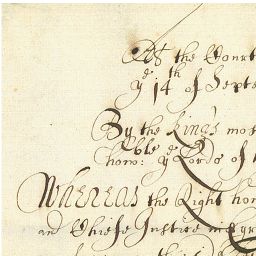 Att the Court
yͤ 14th of Septe
By the King's mos
honoͬ: ble yͤ Lords of
Whereas the Right hon
and Chiefe Justice in Eyr